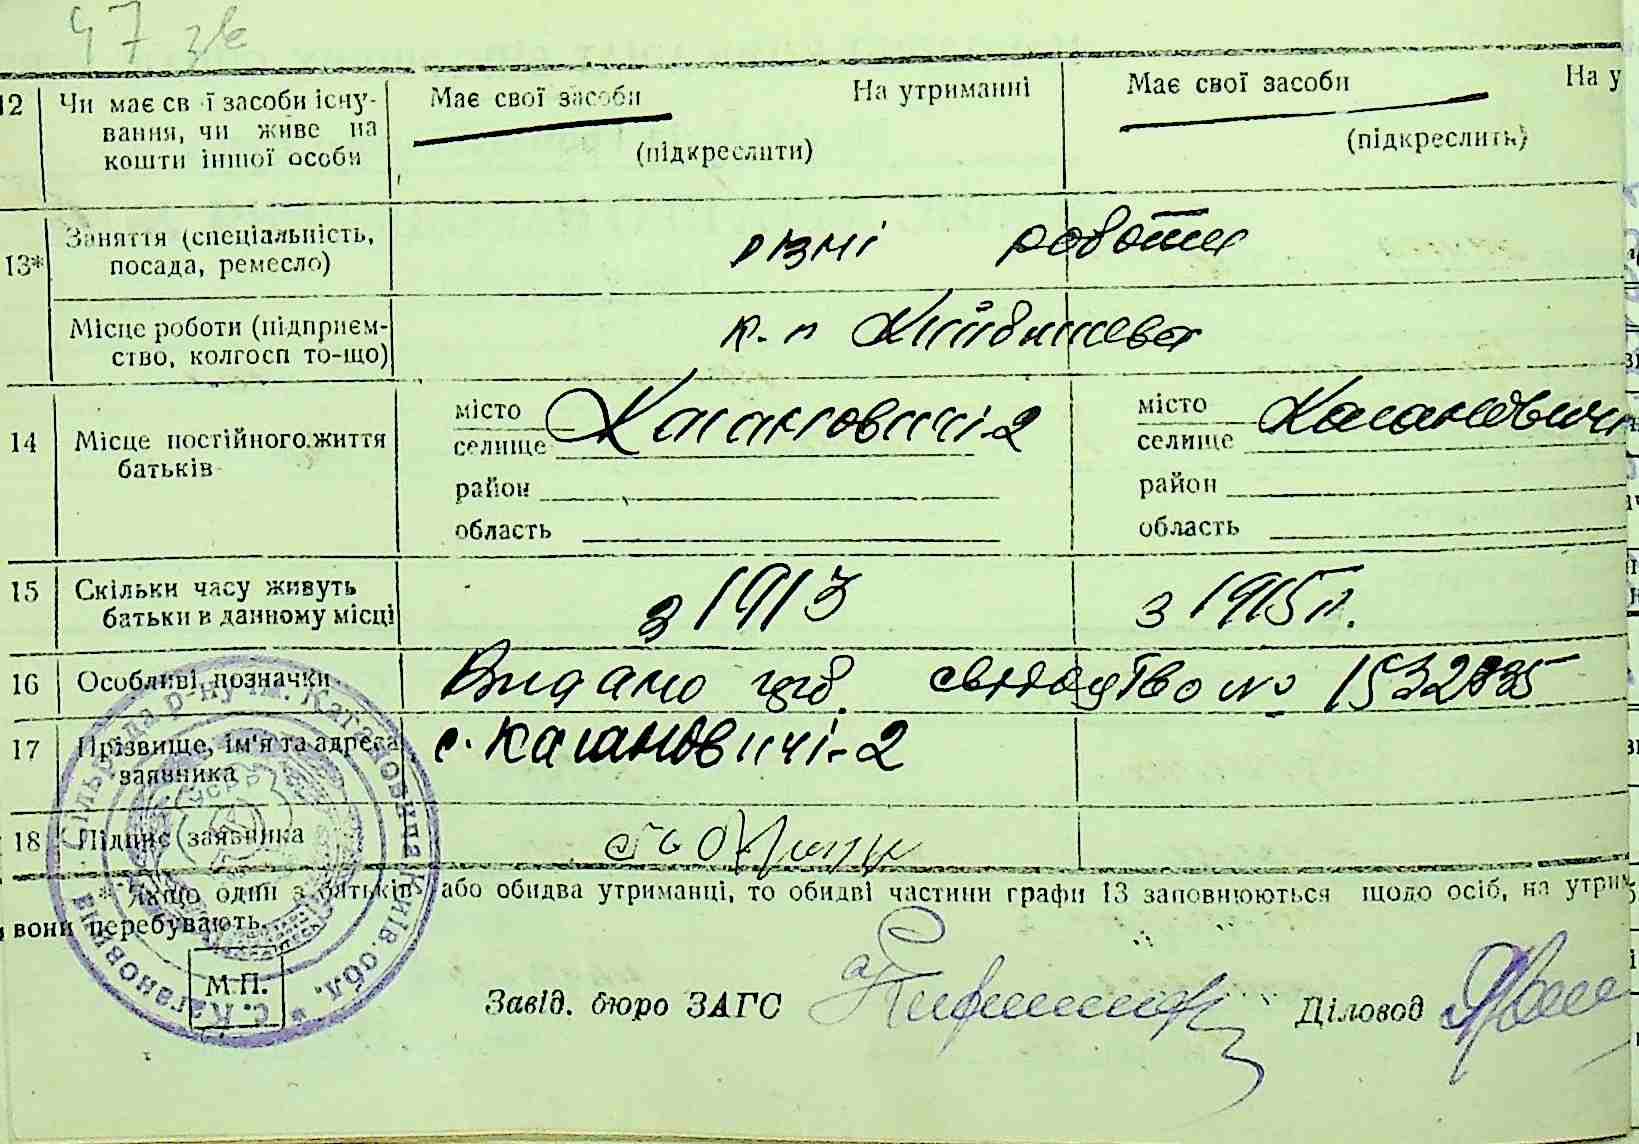 47 зв
12 Чи має св ї засоби існу- Має свої засоби На утриманні Має свої засоби На у
вання, чи живе на
кошти іншої особи (підкреслити) (підкреслить)
13* Заняття (спеціальність, різні роботи
посада, ремесло)
Місце роботи (підприєм- к-п Куйбишева
ство, колгосп то-що)
14 Місце постійного життя місто Кагановичі-2 місто Кагановичі
батьків селище селище
район район
область область
15 Скільки часу живуть з 1913 з 1915 р.
батьки в данному місці
16 Особливі позначки Видано свідоцтво №
17 Прізвище, ім'я та адреса с. Кагановичі-2
заявника
18 Підпис заявника
* Якщо один з батьків або обидва утриманці, то обидві частини графи 13 заповнюються щодо осіб, на утрим
вони перебувають.
М.П. Завід. бюро ЗАГС Діловод
Сільрада р-ну ім. Кагановича Київ. обл. * с. Кагановичі
УСРР